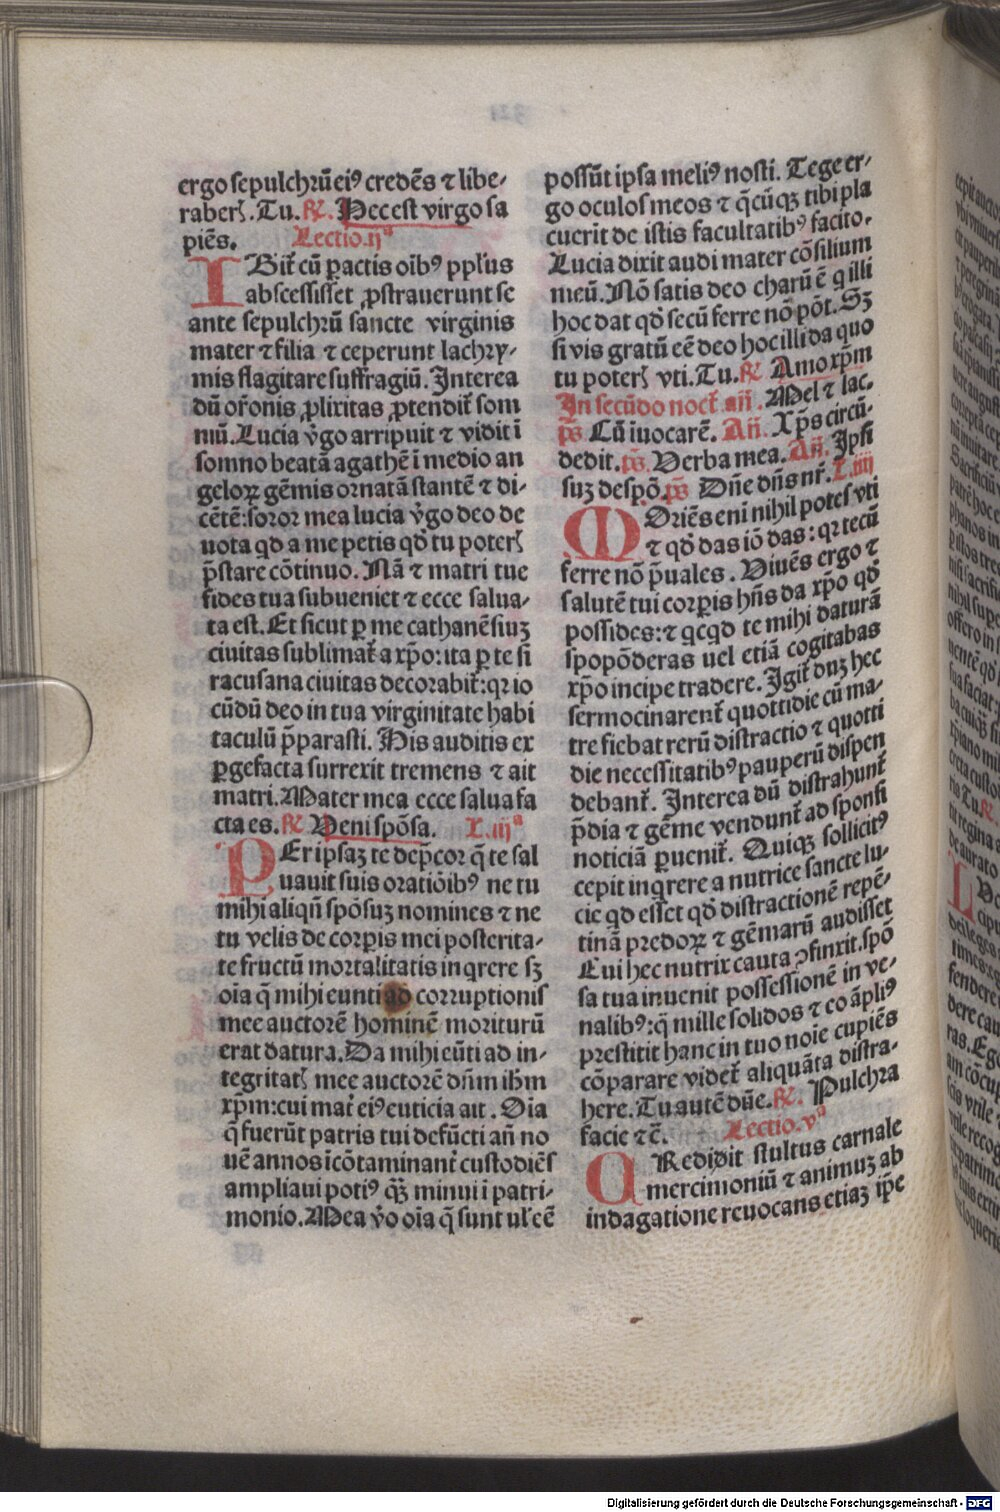 ergo sepulchrū eiꝰ credēs ⁊ libe-
raberꝭ. Tu. ℟. Hec est virgo sa
piēs. Lectio.ijª
IBit̄ cū ꝑactis oībꝰ ppl'us
abscessisset ꝓstrauerunt se
ante sepulchrū sancte virginis
mater ⁊ filia ⁊ ceperunt lachry-
mis flagitare suffragiū. Interea
dū or̄onis ꝓlixitas ꝓtendit̄ som
niū. Lucia v̄go arripuit ⁊ vidit ī
somno beatā agathē ī medio an
geloꝝ gēmis ornatā stantē ⁊ di-
cētē: soror mea lucia v̄go deo de
uota qd a me petis qđ tu poterꝭ
p̄stare cōtinuo. Nā ⁊ matri tue
fides tua subueniet ⁊ ecce salua-
ta est. Et sicut ꝑ me cathanēsiuꝫ
ciuitas sublimat̄ a xp̄o: ita ꝑ te si
racusana ciuitas decorabit̄: qꝛ io
cūdū deo in tua virginitate habi
taculū p̄parasti. His auditis ex
ꝑgefacta surrexit tremens ⁊ ait
matri. Mater mea ecce salua fa
cta es. ℟ Veni spōsa. L.iijª
PEr ipsaꝫ te dep̄cor q̄ te sal
uauit suis oratiōibꝰ ne tu
mihi aliqū spōsuꝫ nomines ⁊ ne
tu velis de corꝑis mei posterita-
te fructū mortalitatis inqrere sꝫ
oīa q̄ mihi eunti ad corruptionis
mee auctorē hominē moriturū
erat datura. Da mihi eūti ad in-
tegritatꝭ mee auctorē dn̄m ihm̄
xp̄m: cui mat̄ eiꝰ euticia ait. Oīa
q̄ fuerūt patris tui defūcti an̄ no
uē annos īcōtaminant̄ custodiēs
ampliaui potiꝰ qꝫ̄ minui ī patri-
monio. Mea v̄o oīa q̄ sunt ul' eē
possūt ipsa meliꝰ nosti. Tege er-
go oculos meos ⁊ q̄cūqꝫ tibi pla
cuerit de istis facultatibꝰ facito.
Lucia dixit audi mater cōsilium
meū. Nō satis deo charū ē q illi
hoc dat qđ secū ferre nō pōt. Sꝫ
si vis gratū eē deo hoc illi da quo
tu poterꝭ vti. Tu. ℟ Amo xp̄m
In secūdo noct̄ an̄. Mel ⁊ lac.
ps̄ Cū iuocarē. An̄. Xp̄s circū-
dedit. ps̄. Verba mea. An̄. Ipsi
suꝫ despō. ps̄ Dn̄e dn̄s nr̄. L.iiij
MOriēs eni nihil potes vti
⁊ qđ das iō das: qꝛ tecū
ferre nō p̄uales. Viuēs ergo ⁊
salutē tui corꝑis hn̄s da xp̄o qđ
possides: ⁊ qcqd te mihi daturā
spopōderas uel etiā cogitabas
xp̄o incipe tradere. Igit̄ duꝫ hec
sermocinarent̄ quottidie cū ma-
tre fiebat rerū distractio ⁊ quotti
die necessitatibꝰ pauperū dispen
debant̄. Interea dū distrahunt̄
p̄dia ⁊ gēme vendunt̄ ad sponsi
noticiā ꝑuenit̄. Quiqꝫ sollicitꝰ
cepit inqrere a nutrice sancte lu-
cie qd esset qđ distractionē repē-
tinā predoꝝ ⁊ gēmarū audisset
Eui hec nutrix cauta ꝯfinxit. spō
sa tua inuenit possessionē in ve-
nalibꝰ: q̄ mille solidos ⁊ co āpliꝰ
prestitit hanc in tuo noīe cupiēs
cōparare videt̄ aliquāta distra-
here. Tu autē dn̄e. ℟. Pulchra
facie ⁊ c̄. Lectio.vª
QRedidit stultus carnale
mercimoniū ⁊ animuꝫ ab
indagatione reuocans etiaꝫ ip̄e
Digitalisierung gefördert durch die Deutsche Forschungsgemeinschaft - DFG